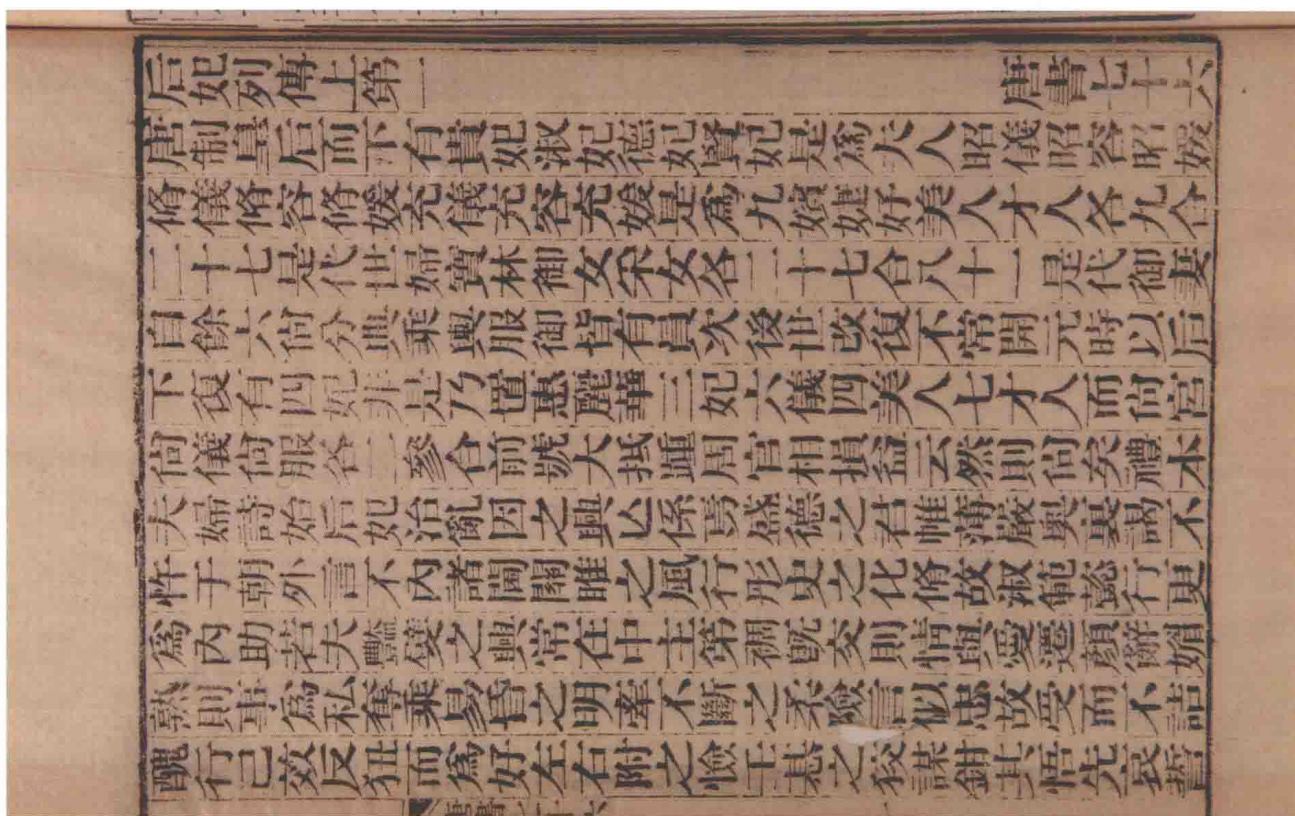 后妃列傳上第一 唐書七十六
唐制皇后而下有貴妃淑妃德妃賢妃是爲夫人昭儀昭容昭媛
脩儀脩容脩媛充儀充容充媛是爲九嬪婕妤美人才人各九合
二十七是代世婦寶林御女采女各二十七合八十一是代御妻
自餘六尚分典乘輿服御皆有員次後世改復不常開元時以后
下復有四妃非是乃置惠麗華三妃六儀四美人七才人而尚宮
尚儀尚服各二參合前號大抵踵周官相損益云然則尚矣禮本
夫婦詩始后妃治亂因之興亡係焉盛德之君帷薄嚴奧裏謁不
忤于朝外言不內諸閫關雎之風行彤史之化脩故淑範懿行更
爲內助若夫豔嬖之興常在中主第裯既交則情與愛遷顏辭媚
熟則事爲私奪乘易昏之明牽不斷之柔險言似忠故受而不詰
醜行已效反狃而爲好左右附之憸壬惎之狡謀鉗其悟先哀誓